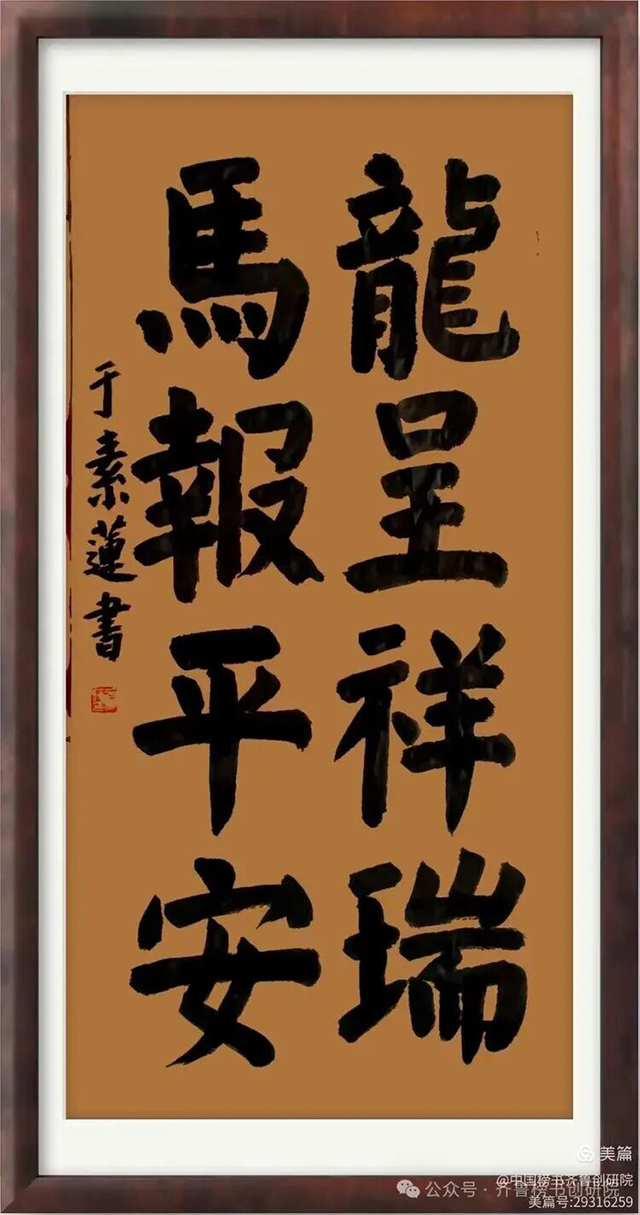 龍呈祥瑞
馬報平安
于素蓮書
美篇
@中国榜书齐鲁创研院
公众号·齐鲁榜书创研院
美篇号:29316259